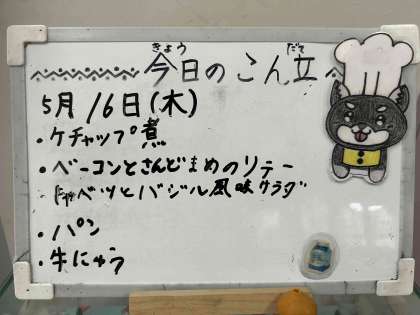 きょう だて
今日のこん立
5月16日(木)
・ケチャップ煮
・ベーコンとさんどまめのソテー
・キャベツとバジル風味サラダ
・パン
・牛にゅう